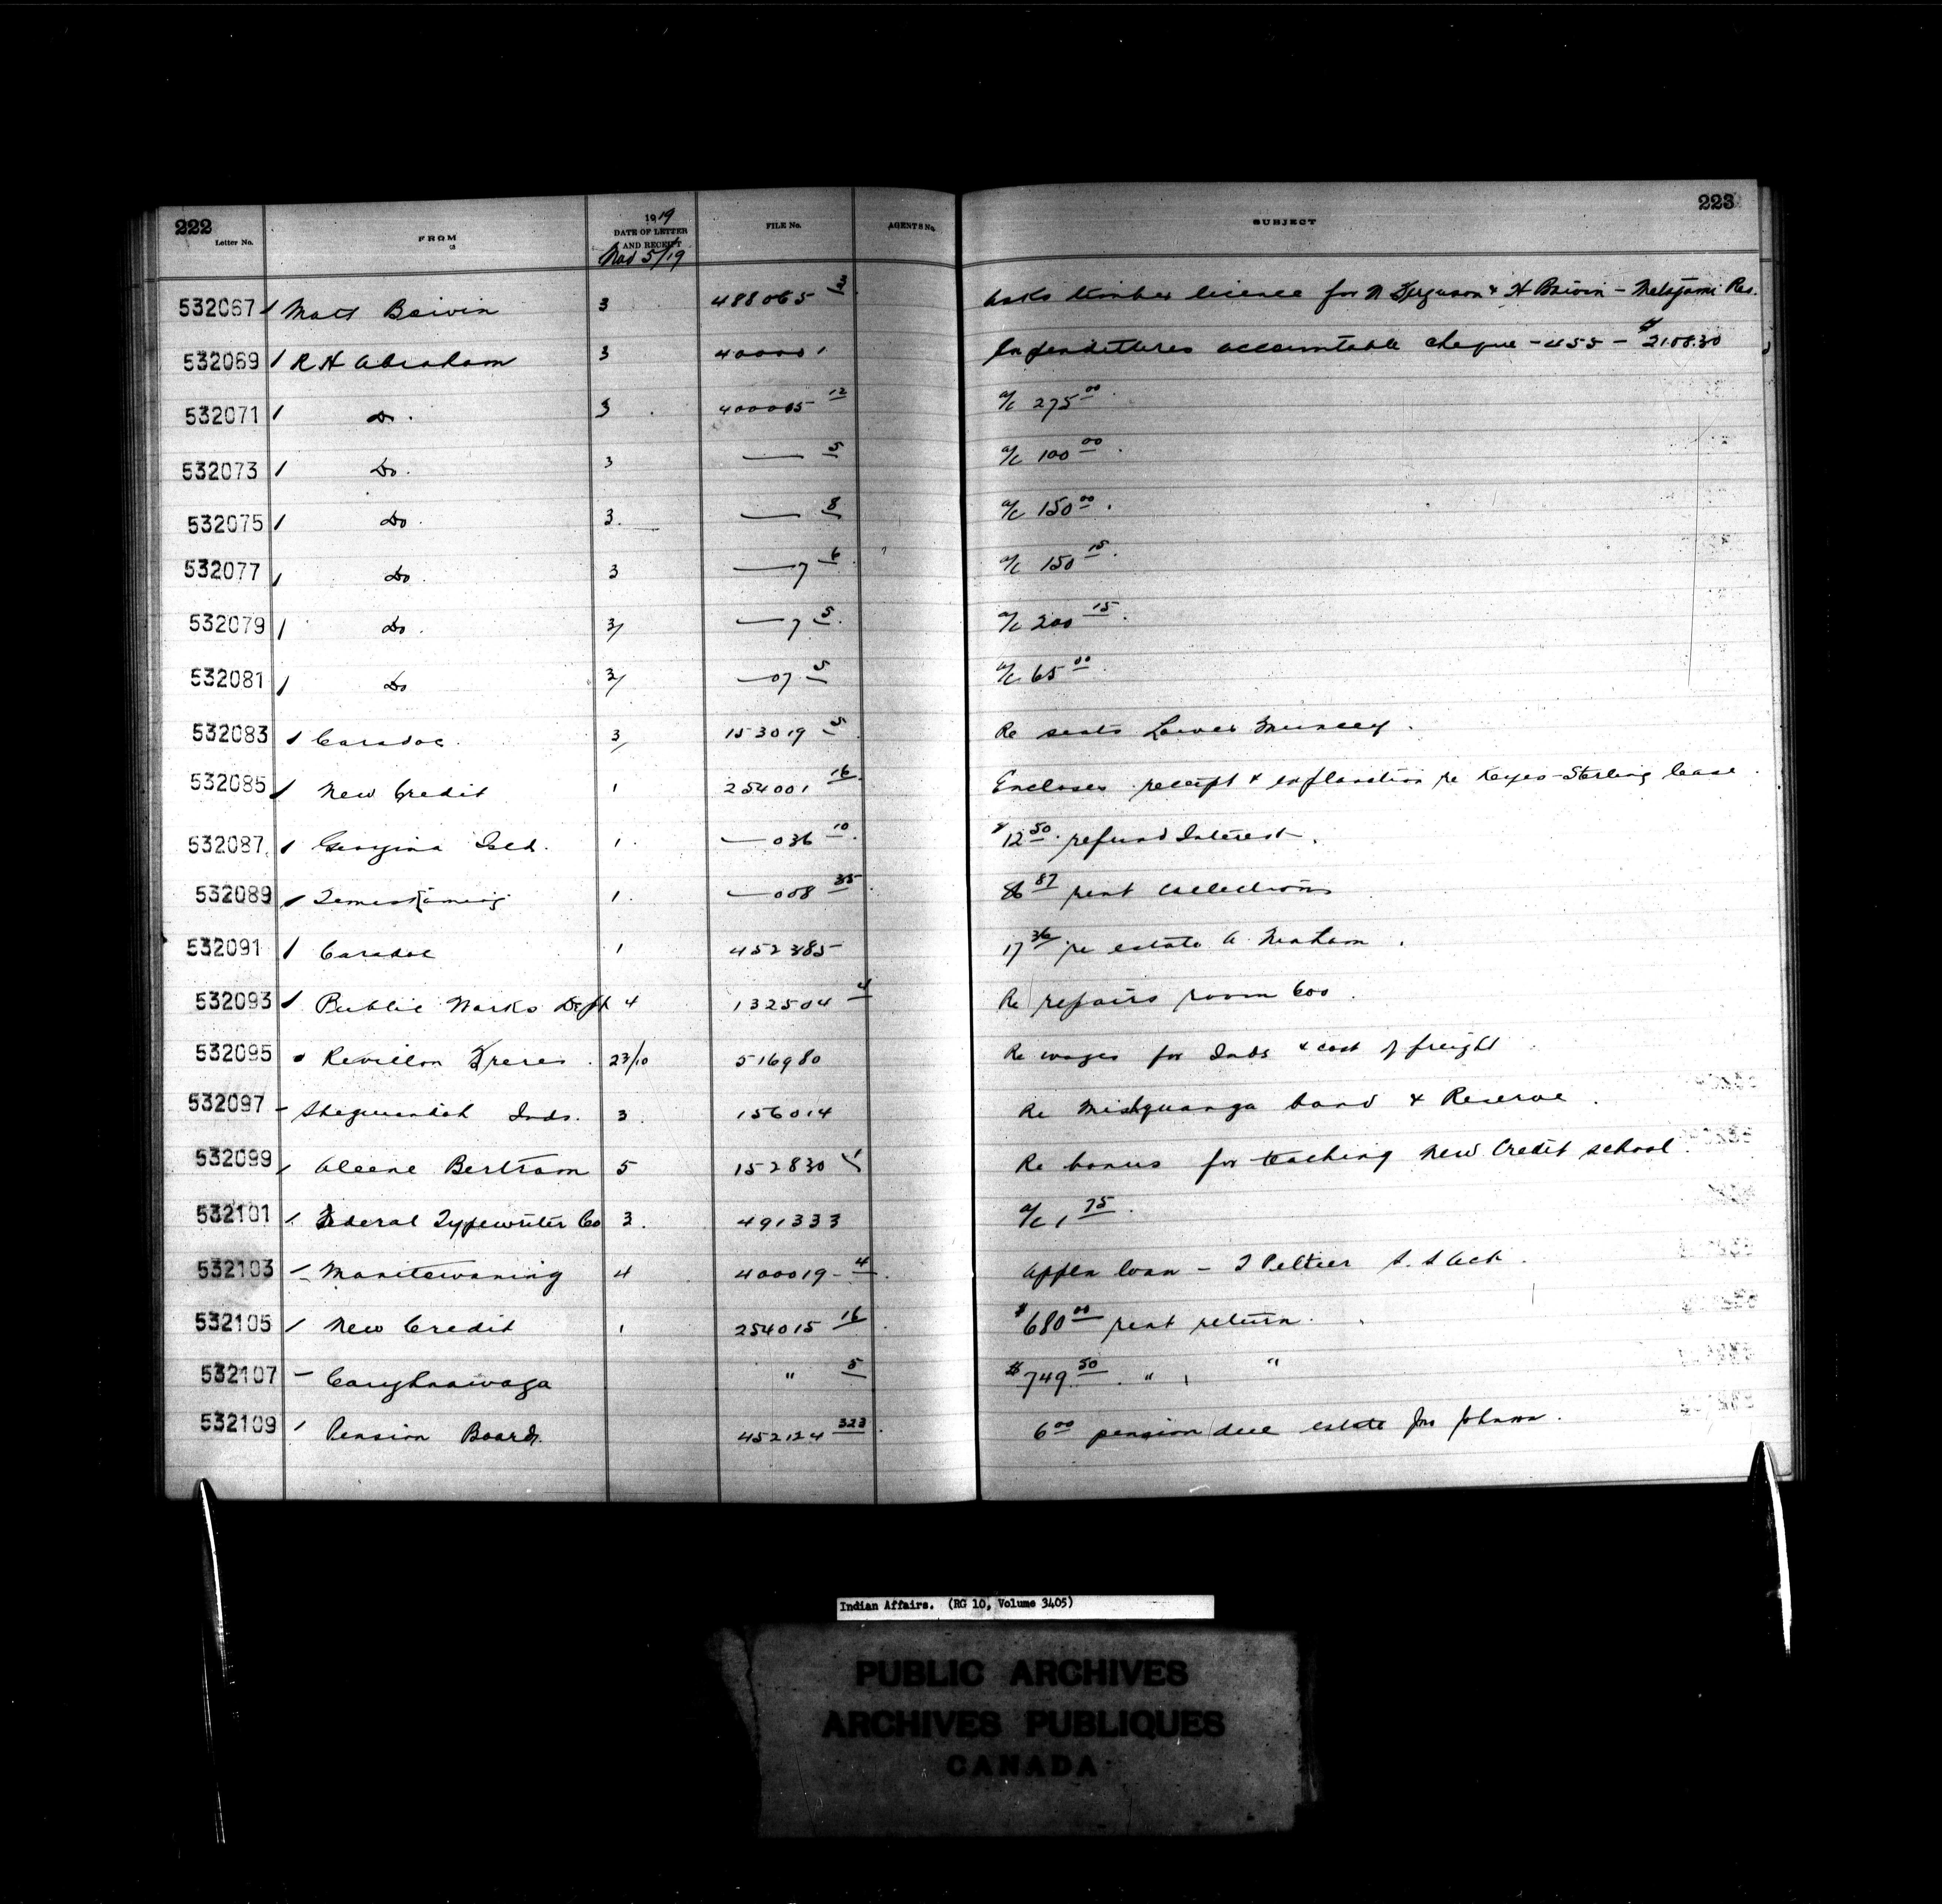 222
223
Letter No. FROM 1919 DATE OF LETTER AND RECEIPT FILE No. AGENTS No. SUBJECT
Nov 5/19
532067 Matt Boivin 3 488065 Asks timber licence for N Ferguson & H Boivin - Res.
532069 R H Abraham 3 400001 Expenditures accountable cheque - 455 - $2108.30
532071 Do. 3 400005 12 a/c 275 00
532073 Do. 3 — 5 a/c 100 00
532075 Do. 3. — 8 a/c 150 00
532077 Do. 3 —7 6 a/c 150 15
532079 Do. 3 —7 5 a/c 200 15
532081 Do 3 —07 5 a/c 65 00
532083 Caradoc 3 153019 5 Re seats Lower Muncey.
532085 New Credit 1 254001 16 Encloses receipt & explanation re Keyes-Sterling lease.
532087 Georgina Isld. 1 —036 10 $12 50 refund Interest.
532089 Temiskaming 1. —008 35 87 rent collections
532091 Caradoc 1 452385 17 36 re estate A.
532093 Public Works Dept 4 132504 4 Re repairs room 600.
532095 Revillon Freres. 23/10 516980 Re wages for Inds & cost of freight
532097 Sheguiandah Inds. 3. 156014 Re band & Reserve.
532099 Aleene Bertram 5 152830 1 Re bonus for teaching New Credit school.
532101 Federal Typewriter Co 3. 491333 a/c 1 75
532103 Manitowaning 4 400019 - 4 Appln loan - J Peltier S. S Act.
532105 New Credit 1 254015 16 $680 00 rent return.
532107 Caughnawaga " 5 $749 50 " "
532109 Pension Board. 452124 323 6 00 pension due estate Jno Johnson.
Indian Affairs. (RG 10, Volume 3405)
PUBLIC ARCHIVES
ARCHIVES PUBLIQUES
CANADA